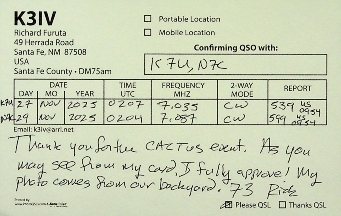 K3IV
Richard Furuta
49 Herrada Road
Santa Fe, NM 87508
USA
Santa Fe County • DM75am
Portable Location
Mobile Location
Confirming QSO with:
K7U, N7C
DATE TIME FREQUENCY 2-WAY REPORT
DAY MO YEAR UTC MHZ MODE
K7U 27 NOV 2025 0207 7.035 CW 539
N7C 29 NOV 2025 0204 7.087 CW 599
Email: k3iv@arrl.net
Thank you for the CACTUS event. As you
may see from my card, I fully approve! My
photo comes from our backyard. 73 Rick
Please QSL Thanks QSL